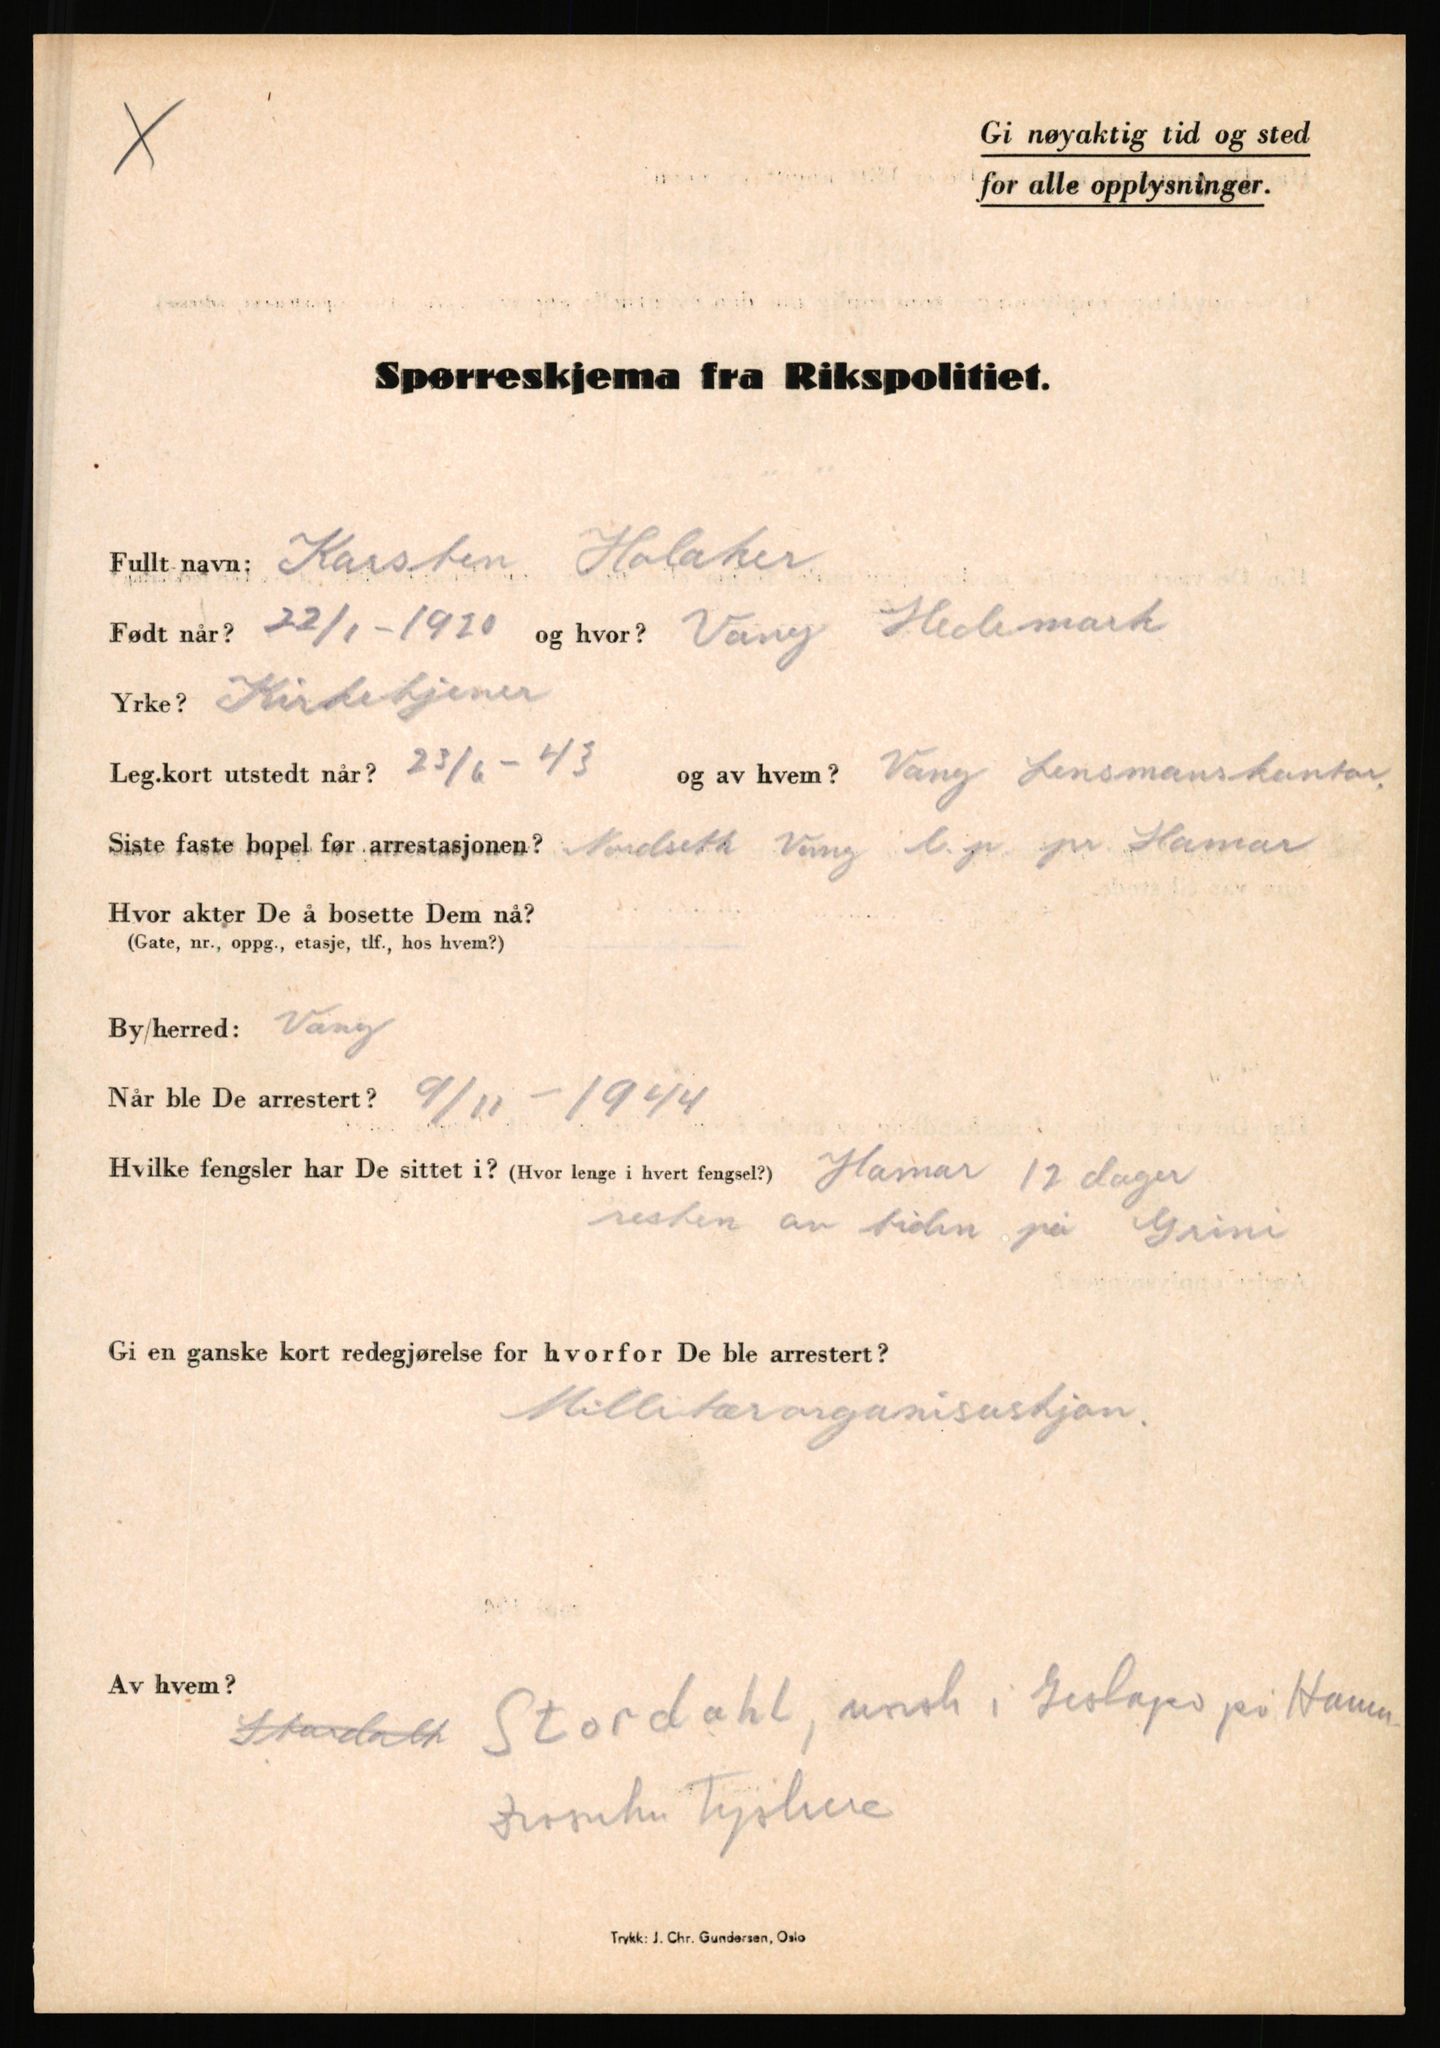 X
Gi nøyaktig tid og sted
for alle opplysninger.
Spørreskjema fra Rikspolitiet.
Fullt navn: Karsten Holaker
Født når? 22/1 - 1920 og hvor? Vang Hedemark
Yrke? Kirketjener
Leg.kort utstedt når? 23/6 - 43 og av hvem? Vang Lensmanskontor.
Siste faste bopel før arrestasjonen? Nordseth Vang pr. Hamar
Hvor akter De å bosette Dem nå?
(Gate, nr., oppg., etasje, tlf., hos hvem?)
By/herred: Vang
Når ble De arrestert? 9/11 - 1944
Hvilke fengsler har De sittet i? (Hvor lenge i hvert fengsel?) Hamar 12 dager
resten av tiden på Grini
Gi en ganske kort redegjørelse for hvorfor De ble arrestert?
Millitærorganisaskjon.
Av hvem?
Stordalh Stordahl, norsk i Gestapo på Hamar
Tyskere
Trykk: J. Chr. Gundersen, Oslo